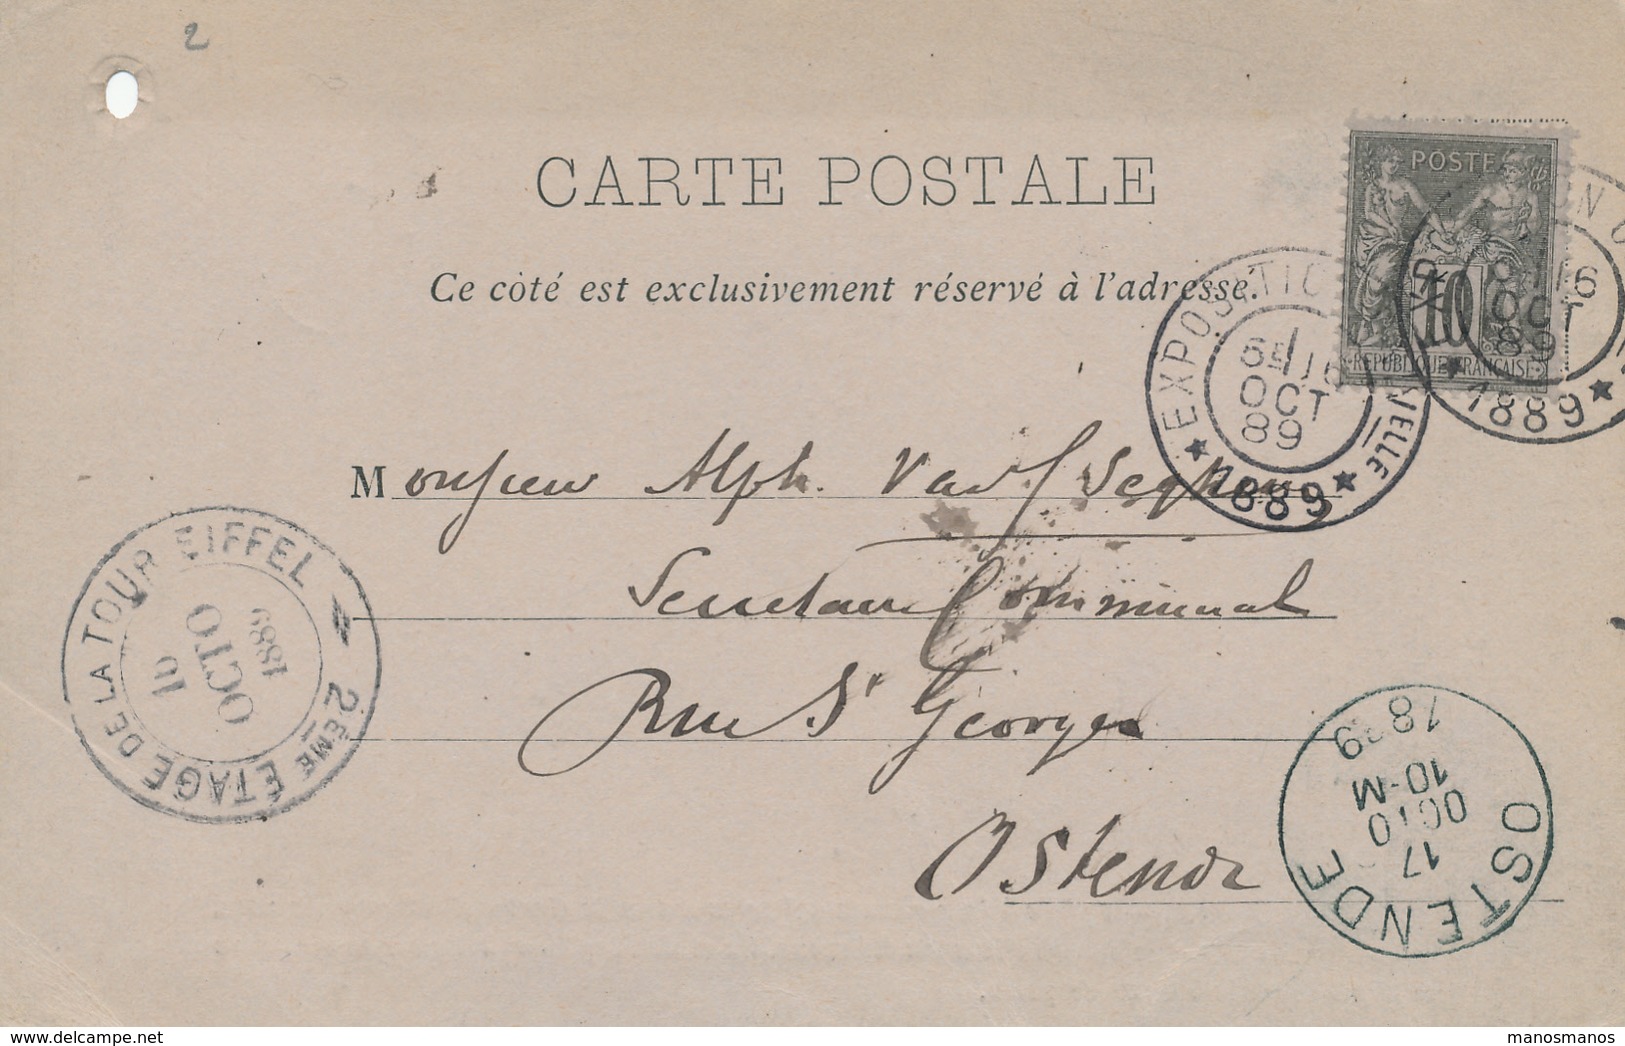 2
CARTE POSTALE
Ce côté est exclusivement réservé à l'adresse.
POSTE
10
REPUBLIQUE FRANÇAISE
EXPOSITION
5E 16
OCT
89
1889
16
OCT
89
1889
Monsieur Alph. Van Seghers
Secretaire Communal
Rue St Georges
Ostende
2ÈME ÉTAGE DE LA TOUR EIFFEL
16
OCTO
1889
OSTENDE
17
OCTO
10-M
1889
delcampe.net
manosmanos